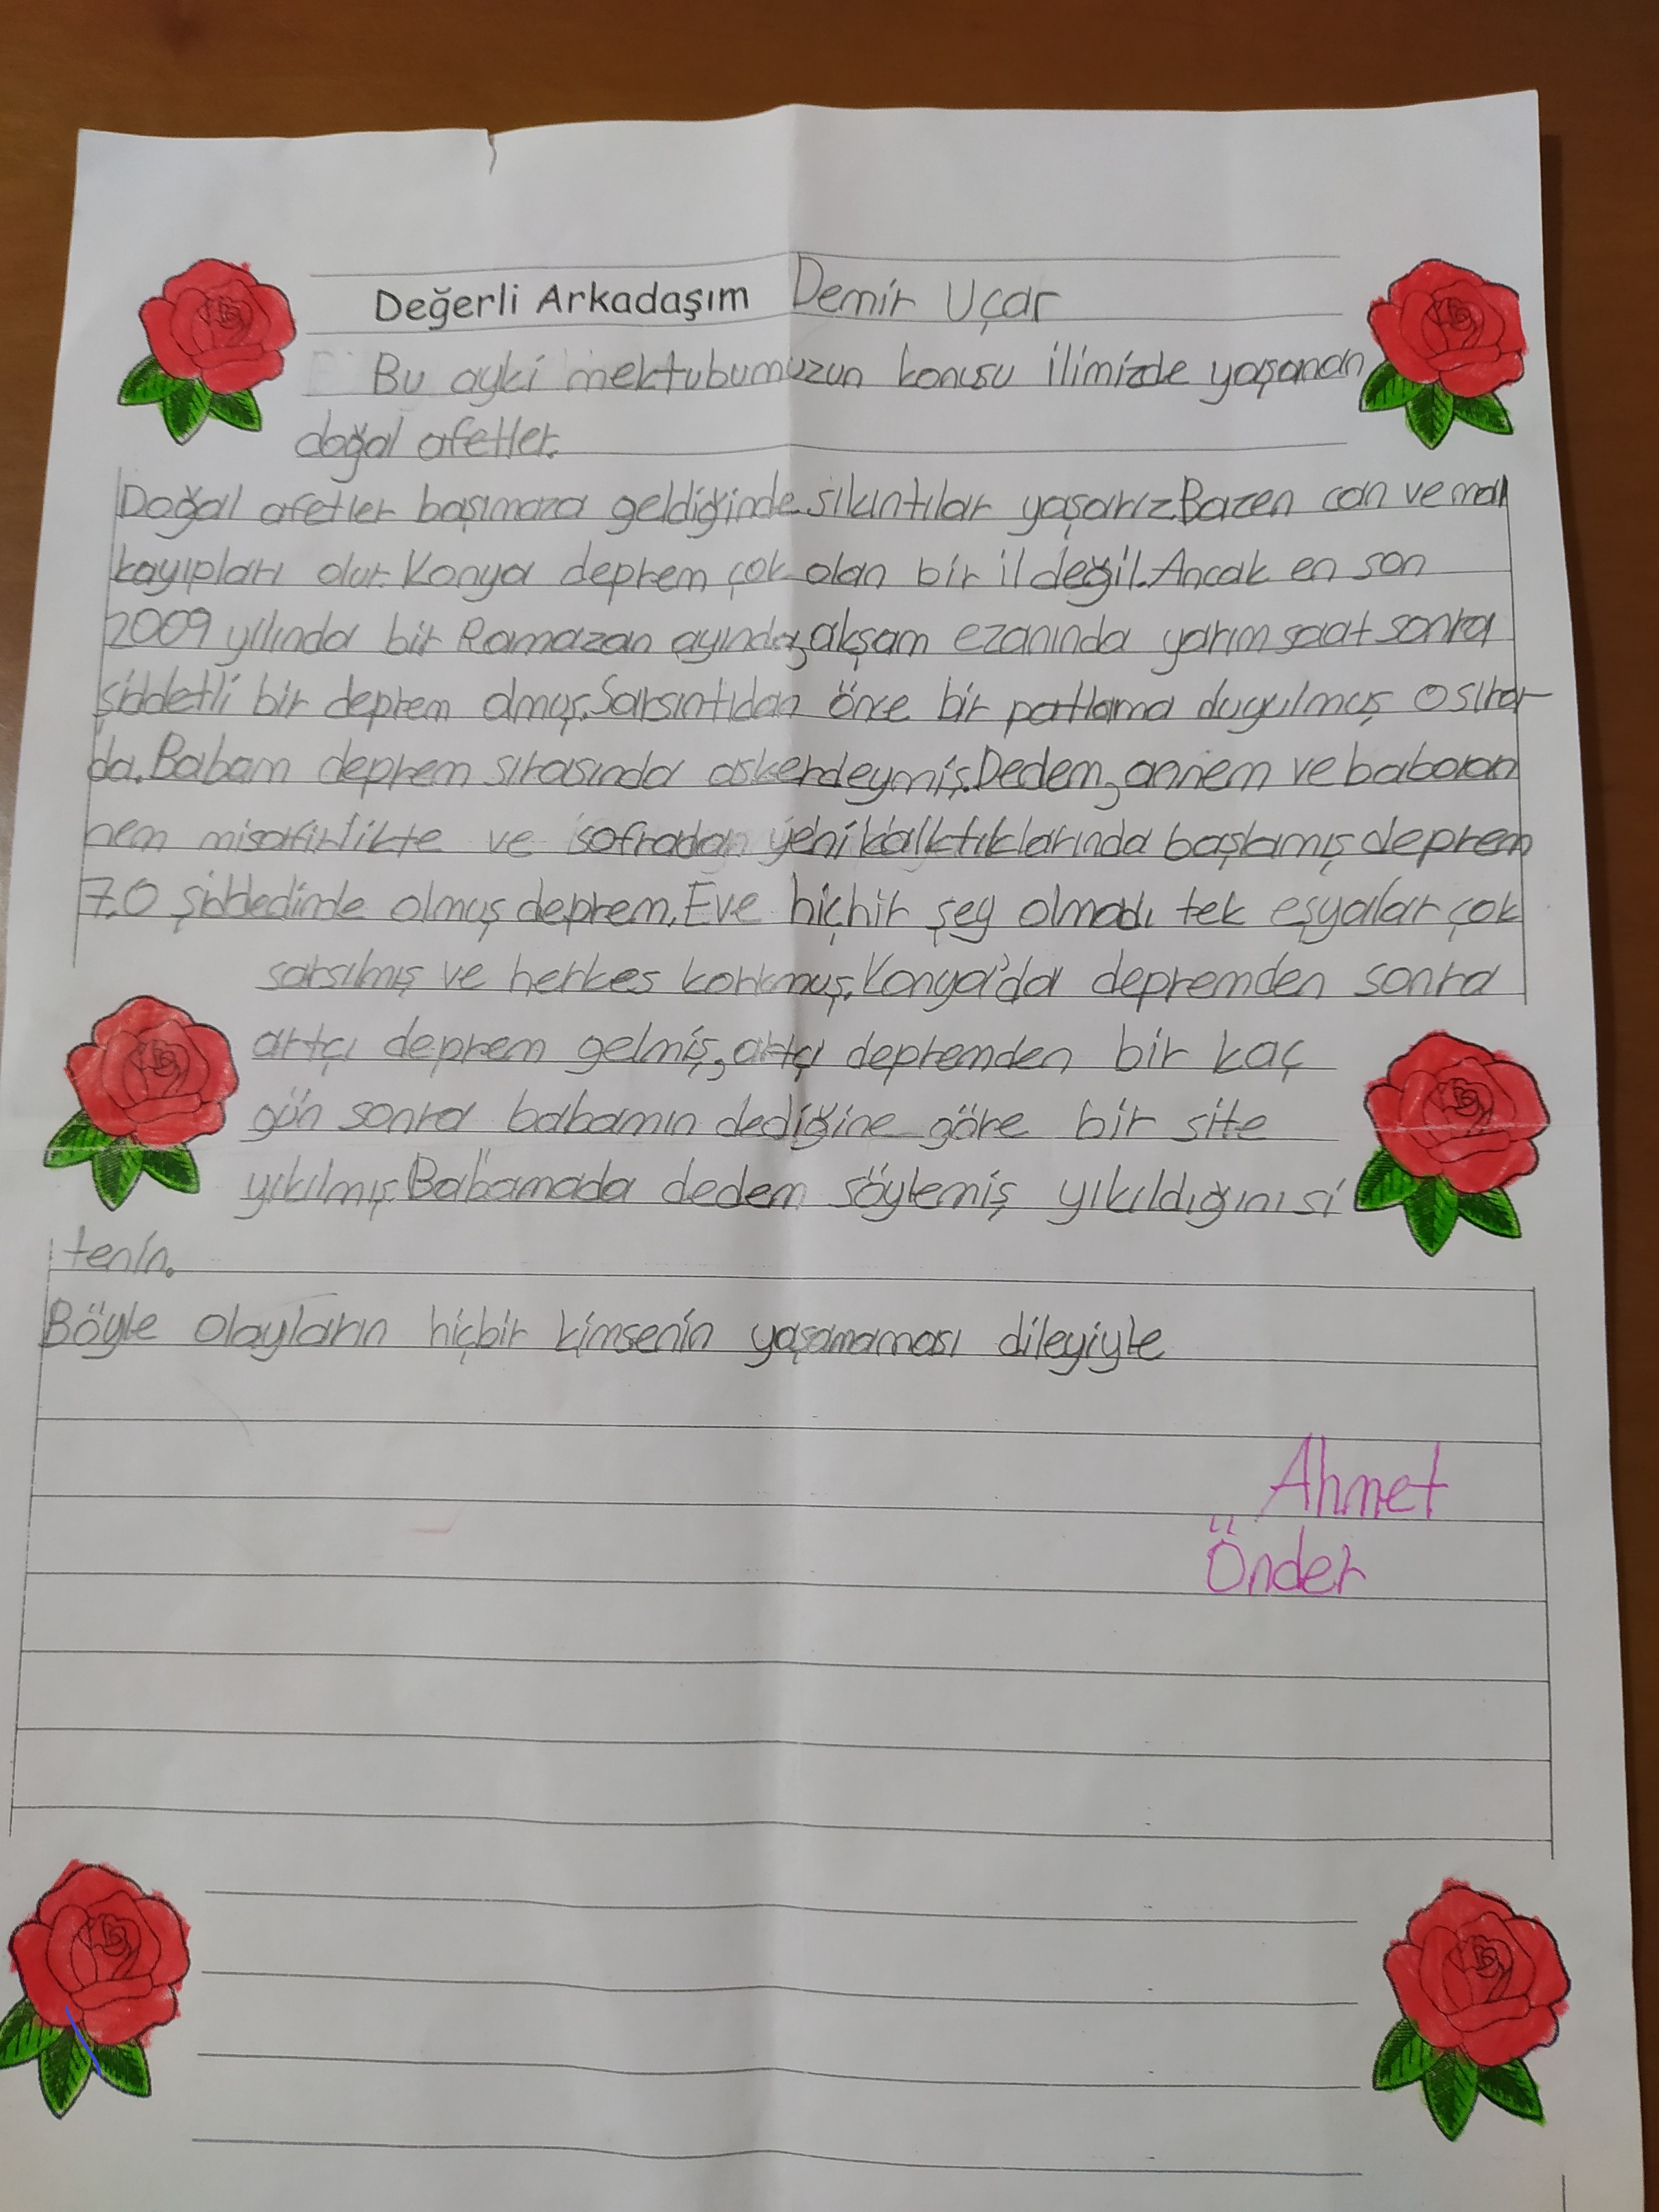 Değerli Arkadaşım Demir Uçar
Bu ayki mektubumuzun konusu ilimizde yaşanan
doğal afetler.
Doğal afetler başımaza geldiğinde sıkıntılar yaşarız.Bazen can ve mal
kayıpları olur. Konya deprem çok olan bir il değil. Ancak en son
2009 yılında bir Ramazan ayında, akşam ezanında yarım saat sonra
şiddetli bir deprem olmuş. Sarsıntıdan önce bir patlama duyulmuş o sıra-
da. Babam deprem sırasında askerdeymiş. Dedem, annem ve babaan
nem misafirlikte ve sofradan yeni kalktıklarında başlamış deprem
7.0 şiddedinde olmuş deprem. Eve hiçbir şey olmadı tek eşyalar çok
sarsılmış ve herkes korkmuş. Konya'da depremden sonra
artçı deprem gelmiş, artçı depremden bir kaç
gün sonra babamın dediğine göre bir site
yıkılmış. Babamada dedem söylemiş yıkıldığını si
tenin.
Böyle olayların hiçbir kimsenin yaşamaması dileyiyle
Ahmet
Önder